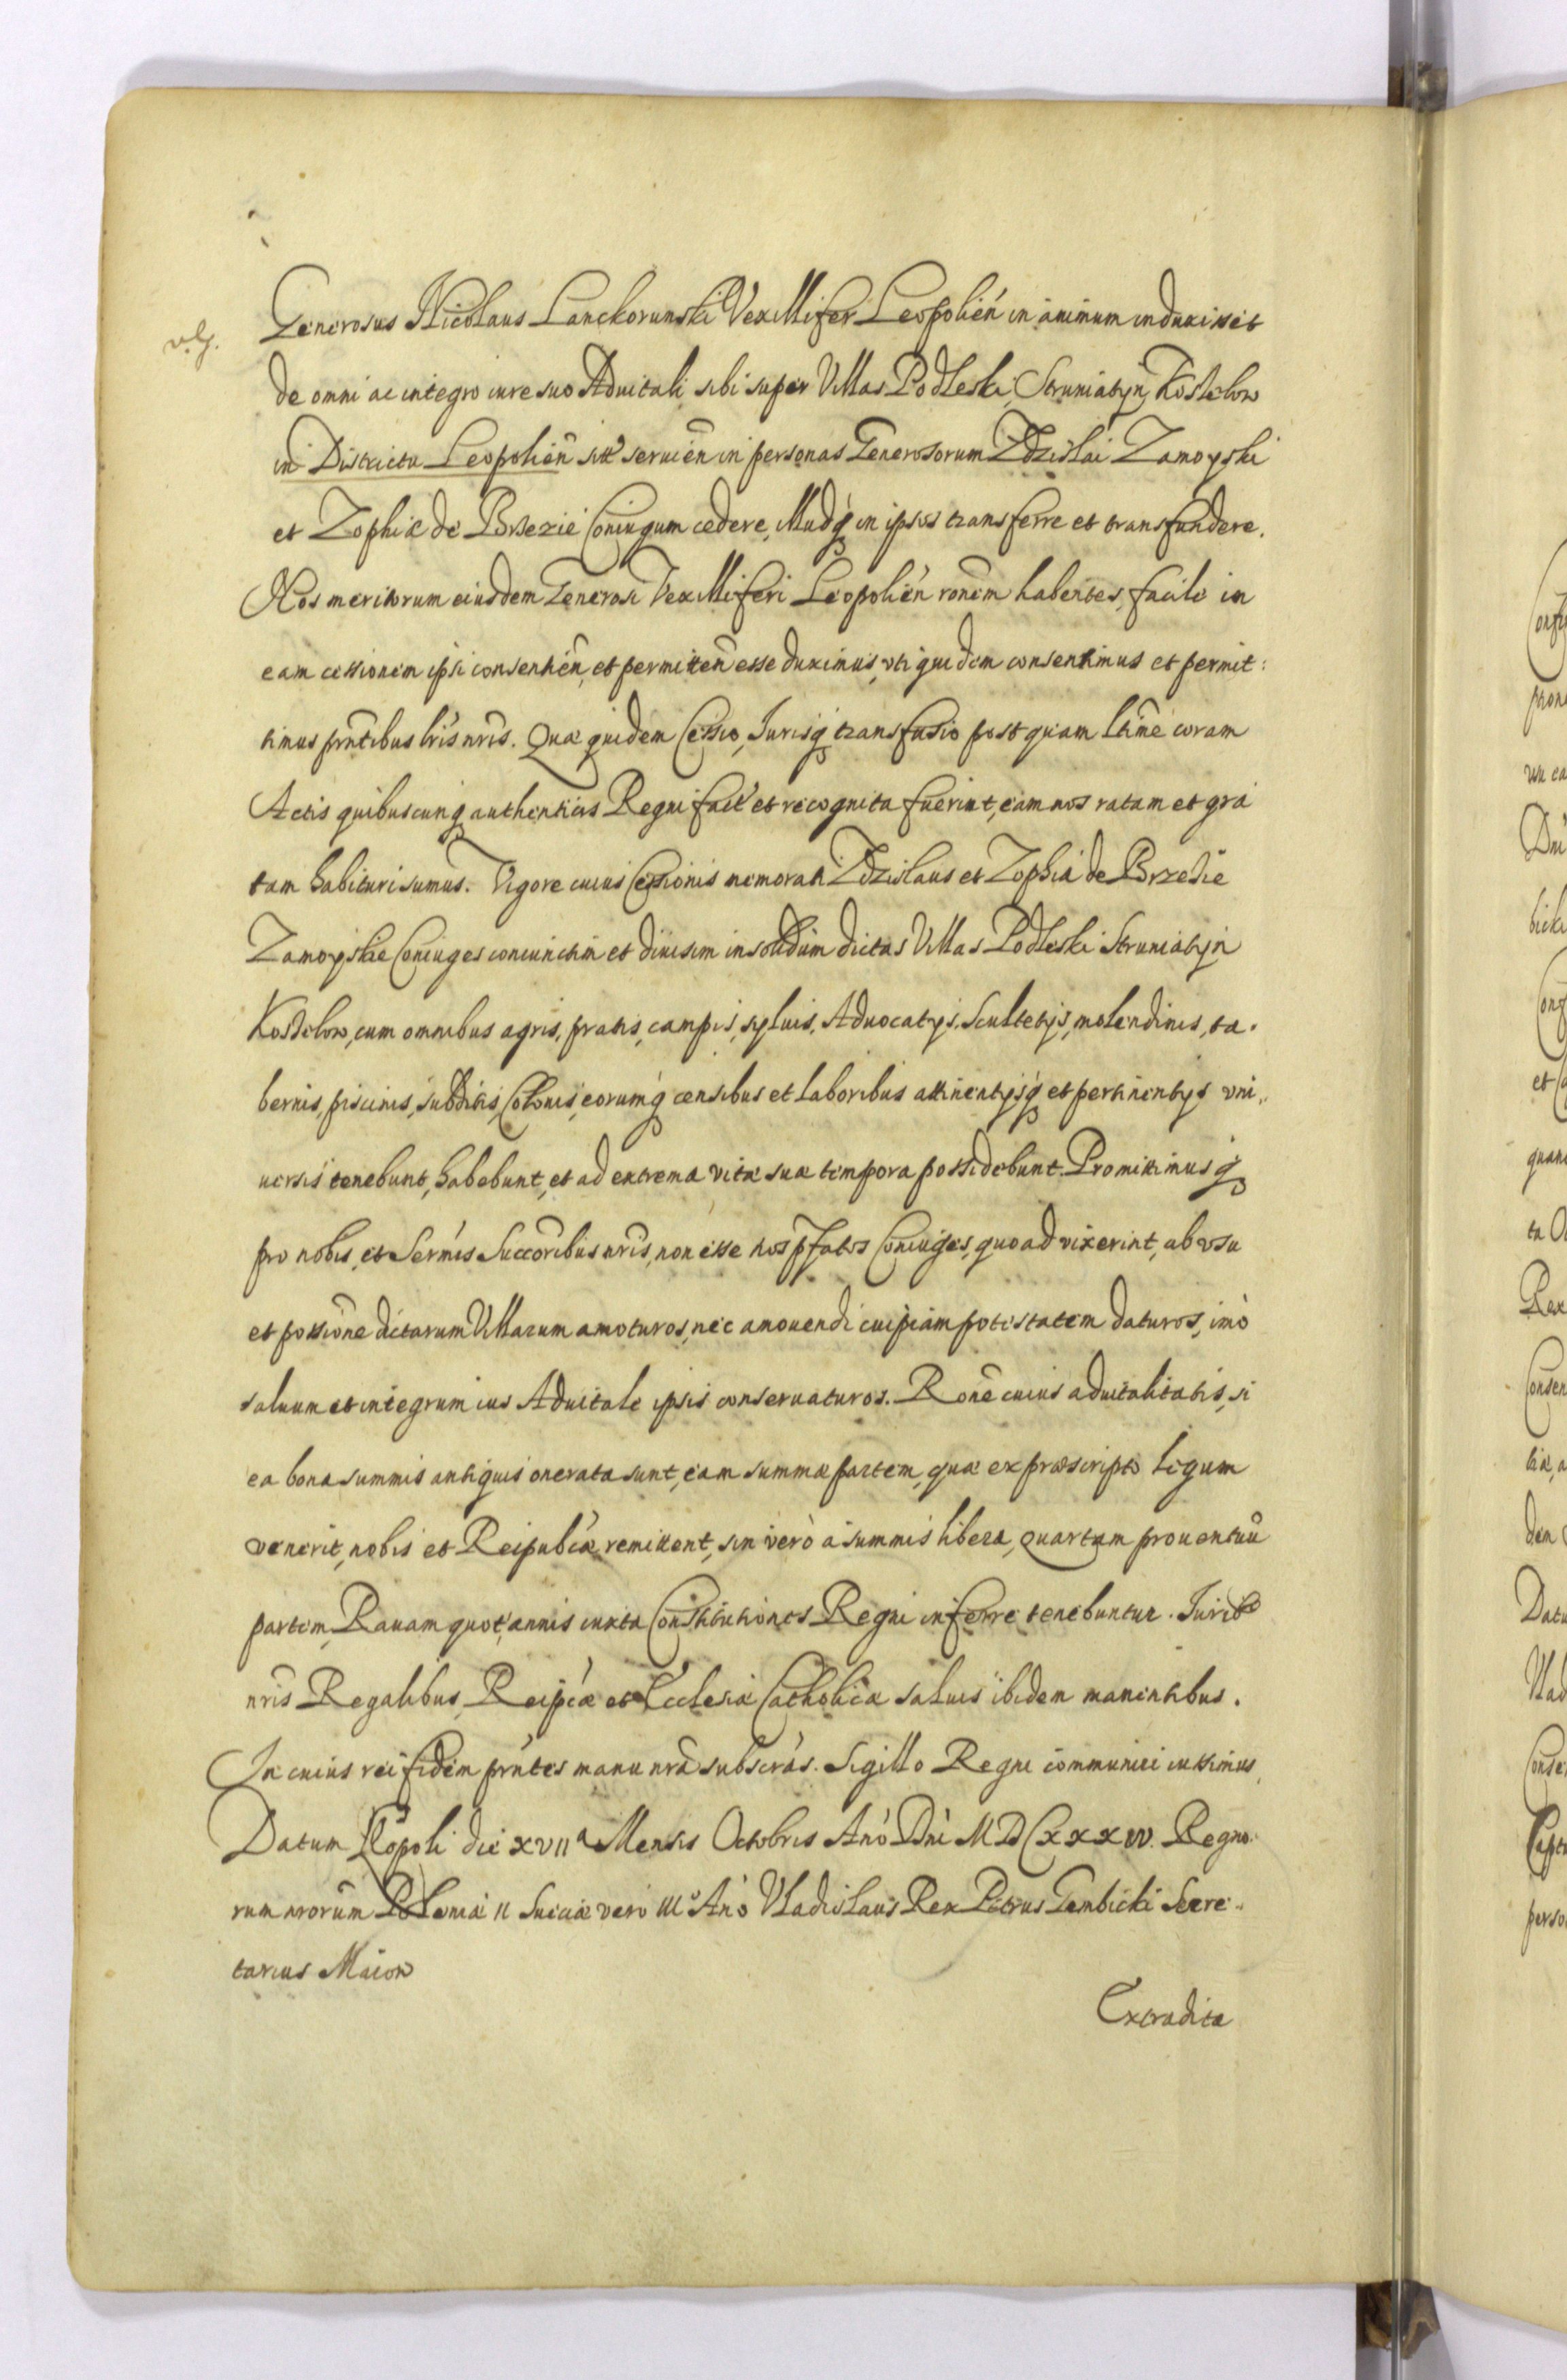 Generosus Nicolaus Lanckorunski Vexillifer Leopolień in animum induxisset
de omni ac integro iure suo Aduitali sibi super Villas Podleski, Struniatyn, Kostelow
in Districtu Leopolień sitt seruień in personas Generosorum Zdzislai Zamoyski
et Zophiæ de Brzezie Coniugum cedere, illudq́ in ipsos transferre et transfundere.
Nos meritorum eiusdem Generosi Vexilliferi Leopolień ronem habentes, facile in
eam cessionem ipsi consentień, et permitteń esse duximus, vti quidem consentimus et permit:
timus prńtibus lris nris. Quæ quidem Cessio, Jurisq́ transfusio postquam ltime coram
Actis quibuscunq́ authenticis Regni fact et recognita fuerint, eam nos ratam et gra
tam habituri sumus. Vigore cuius Cessionis memorati Zdzislaus et Zophia de Brzezie
Zamoyskie Coniuges coniunctim et diuisim insolidum dictas Villas Podleski Struniatyn
Kostelow, cum omnibus agris, pratis, campis, syluis, Aduocatijs, Scultetijs, molendinis, ta.
bernis, piscinis, subditis, Colonis, eorumq́ censibus et laboribus attinentijsq́ et pertinentijs vni,,
uersis tenebunt, habebunt, et ad extrema vitæ suæ tempora possidebunt. Promittimusq́
pro nobis, et Sermis Succoribus nris, non esse nos pfatos Coniuges, quoad vixerint, ab vsu
et possione dictarum Villarum amoturos, nec amouendi cuipiam potestatem daturos, imò
saluum et integrum ius Aduitale ipsis conseruaturos. Rone cuius aduitalitatis, si
ea bona summis antiquis onerata sunt, eam summæ partem, quæ ex præscripto legum
venerit, nobis et Reipubcæ remittent, sin verò a summis libera, quartam prouentuū
partem Rauam quot,annis iuxta Constitutiones Regni inferre tenebuntur. Jurib9
nris Regalibus, Reipcæ et Ecclesiæ Catholicæ saluis ibidem manentibus.
In cuius rei fidem prńtes manu nra subscras. Sigillo Regni communiri iussimus,
Datum Leopoli die XVIIa Mensis Octobris Anò Dni MDCXXXIV. Regno.
rum nrorum Poloniæ II Sueciæ vero IIIo Anò Vladislaus Rex Petrus Gembicki Secre,,
tarius Maior
Extradita